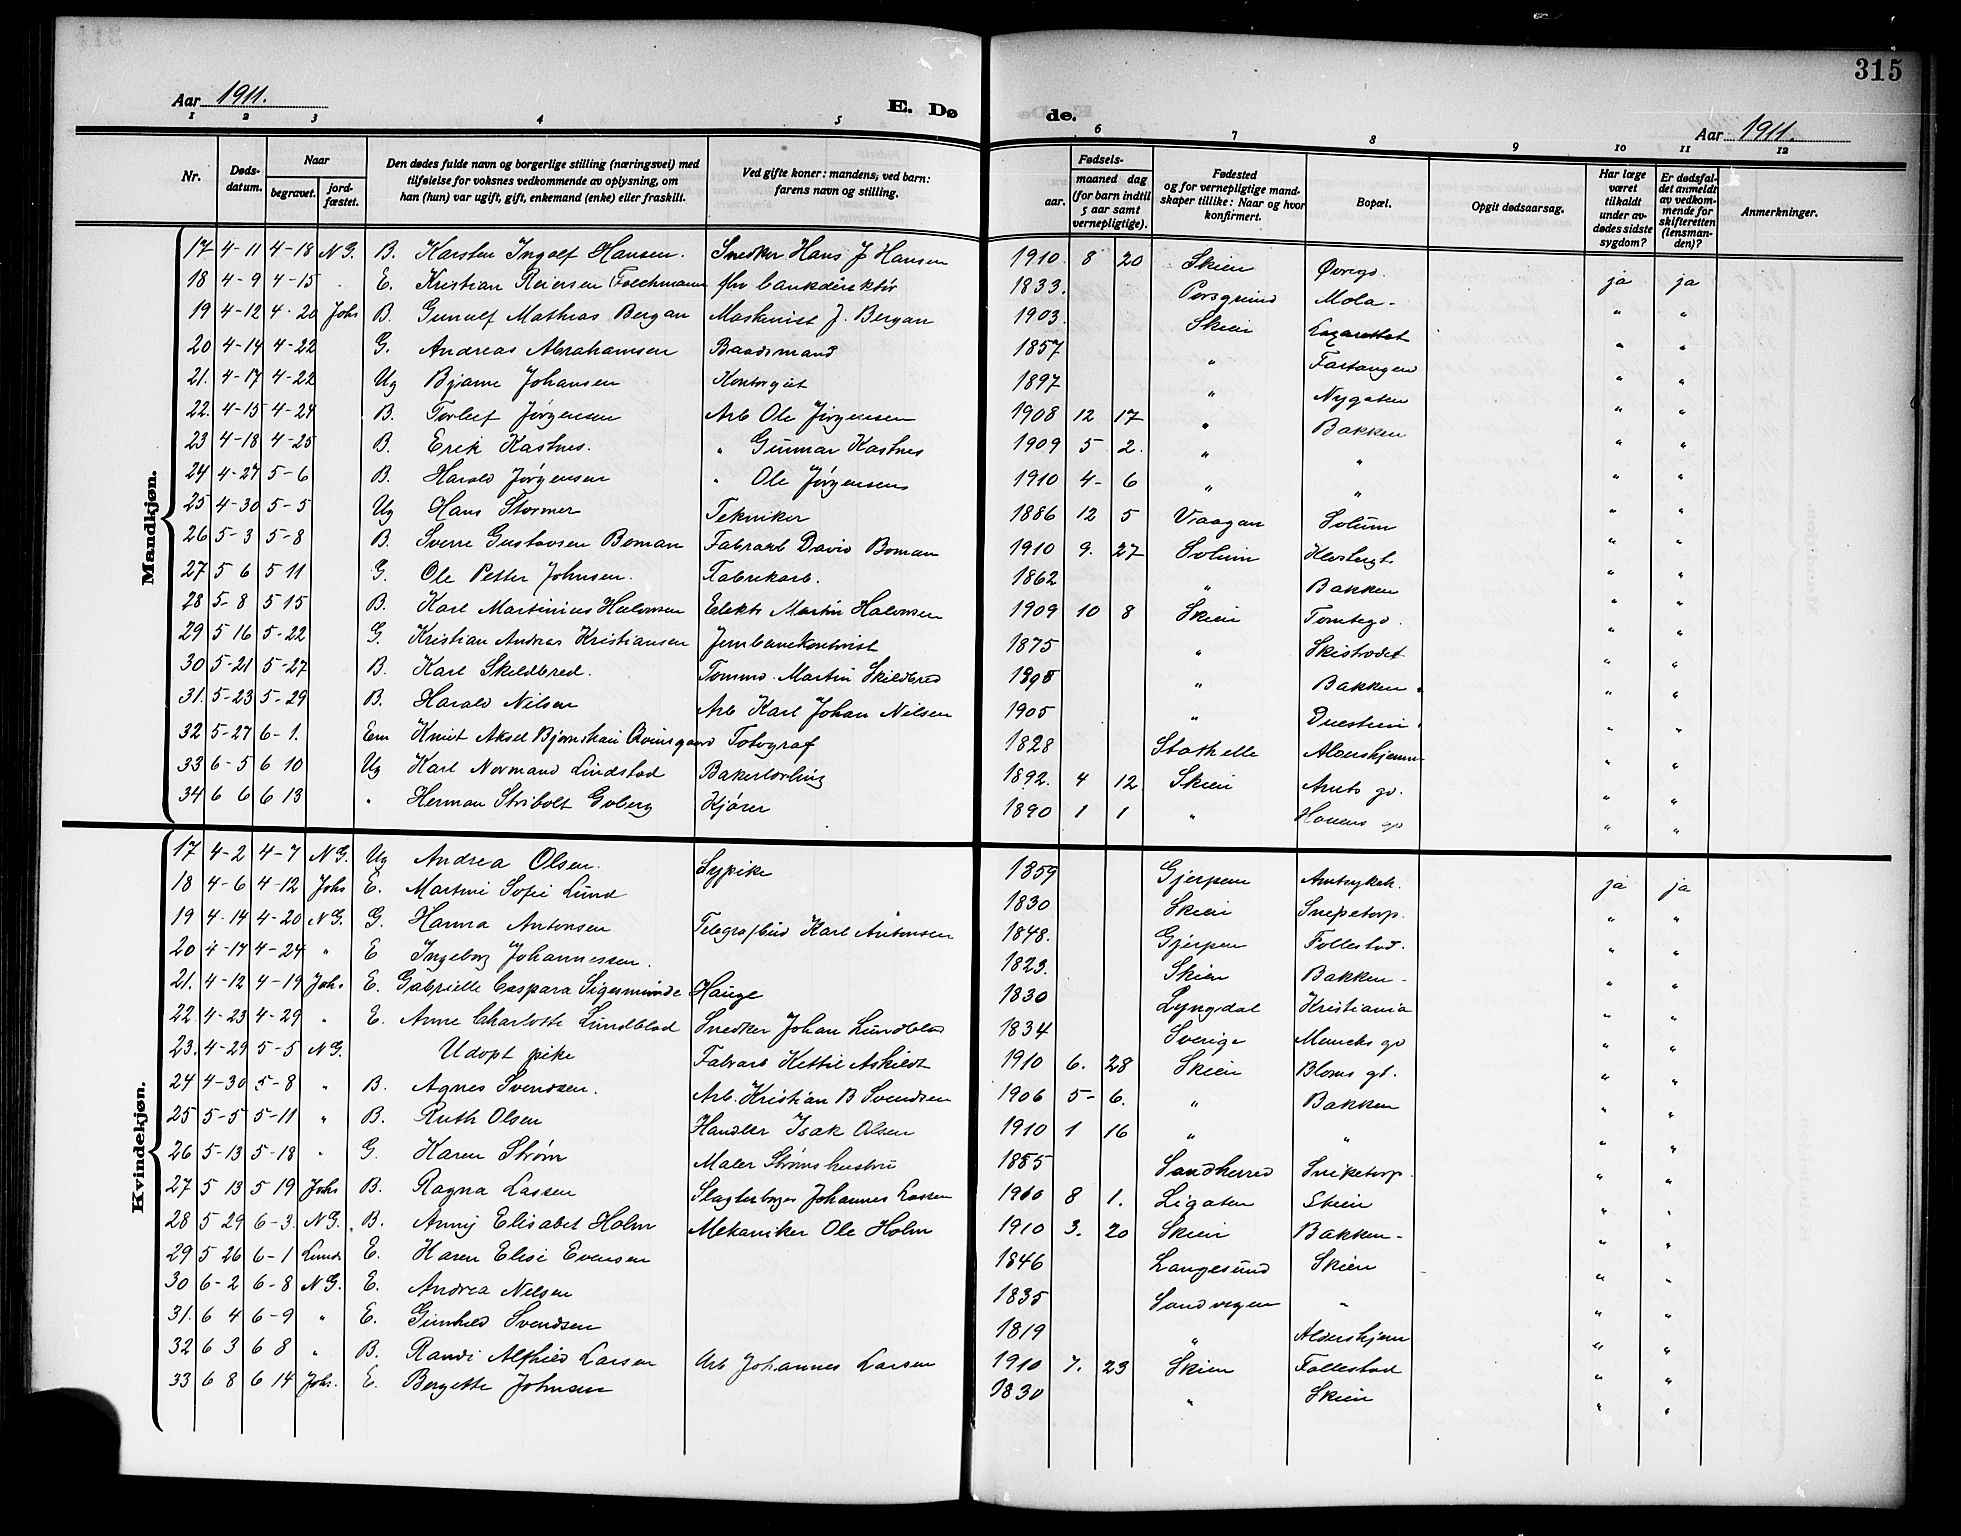 315
Aar 1911.
E. Dø
de.
Aar 1911.
1 2 3 4 5 6 7 8 9 10 11 12
Nr.
Døds-
datum.
Naar
begravet.
jord-
fæstet.
Den dødes fulde navn og borgerlige stilling (næringsvei) med
tilføielse for voksnes vedkommende av oplysning, om
han (hun) var ugift, gift, enkemand (enke) eller fraskilt.
Ved gifte koner: mandens; ved barn:
farens navn og stilling.
Fødsels-
aar.
maaned dag
(for barn indtil
5 aar samt
vernepligtige).
Fødested
og for vernepligtige mand-
skaper tillike: Naar og hvor
konfirmert.
Bopæl.
Opgit dødsaarsag.
Har læge
været
tilkaldt
under av-
dødes sidste
sygdom?
Er dødsfal-
det anmeldt
av vedkom-
mende for
skifteretten
(lensman-
den)?
Anmerkninger.
Mandkjøn.
17 4-11 4-18 N G. B. Karsten Ingolf Hansen. Snedker Hans J Hansen 1910. 8 20 Skien Øvregd. ja ja
18 4-9 4-15 E. Kristian Reiersen fhv bankdirektør 1833. Porsgrund Mola - " "
19 4-12 4-20 Johs B. Gunulf Mathias Bergan Maskinist J. Bergan 1903. Skien Lazarettet " "
20 4-14 4-22 G. Andreas Abrahamsen Baadsmand 1857 " Fartangen " "
21. 4-17 4-22 Ug Bjarne Johansen Kontorgut 1897 " Nygaten " "
22. 4-15 4-24 B. Torleif Jørgensen Arb Ole Jørgensen 1908 12 17 " Bakken " "
23 4-18 4-25 B. Erik Kastnes. " Gunnar Kastnes 1909 5 2. " " " "
24 4-27 5-6 B. Harald Jørgensen " Ole Jørgensen 1910 4- 6 " " " "
25 4-30 5-5 Ug Hans Stormer Tekniker 1886 12 5 Vaagan Solum " "
26 5-3 5-8 B. Sverre Gustavsen Boman Fabrarb David Boman 1910 9. 27 Solum Klostergt " "
27 5 6 5 11 G. Ole Petter Johnsen. Fabrikarb. 1862 " Bakken " "
28 5-8 5 15 B. Karl Martinius Halvorsen Elektr Martin Halvorsen 1909 10 8 Skien Tomtegd. " "
29 5 16 5-22 G. Kristian Andreas Kristiansen Jernbanekontorist 1875 " Skistredet " "
30 5-21 5-27 B. Karl Skildbred. Tømmd. Martin Skildbred " Bakken " "
31. 5-23 5-29 B. Harald Nilsen Arb Karl Johan Nilsen 1905 " Duestien " "
32 5-27 6-1. Em Knut Aksel Bjørnshau Qvinsgaard Fotograf 1828 Stathelle Aldershjemm " "
33 6-5 6 10 Ug Karl Normand Lindstad Bakerlærling 1892. 4 12 Skien Amts gd. " "
34 6 6 6 13 " Herman Stribolt Goberg Kjører 1890 1 1 " Hauens gd " "
Kvindekjøn.
17 4-2 4-7 N G. Ug Andrea Olsen. Sypike 1859 Gjerpen Amtsykeh. ja ja
18 4-6 4-12 Johs E. Martine Sofie Lund 1830 Skien Snipetorp. " "
19 4-14 4-20 N G. G. Hanna Antonsen Telegrafbud Karl Antonsen 1848. Gjerpen Follestad. " "
20 4-17 4-24 " E Ingeborg Johannessen. 1823. Skien Bakken - " "
21. 4-12 4-19 Joh. E. Gabrielle Caspara Sigesmunde Hauge 1830 Lyngdal Kristiania " "
22 4-23 4-29 " E. Anne Charlotte Lundblad Snedker Johan Lundblad 1834 Sverige Muncks gd " "
23. 4-29 5-5 N G. Udøpt pike Fabrarb Kettil Askildt 1910 6. 28 Skien Bloms gt. " "
24 4-30 5-8 " B. Agnes Svendsen. Arb. Kristian B Svendsen 1906 5- 6. " Bakken " "
25 5-5 5-11 " B. Ruth Olsen Handler Isak Olsen 1910 1 16 " " " "
26 5-13 5-18 " G. Karen Strøm Maler Strøms hustru 1885 Sandherred Sniketorp. " "
27 5 13 5 19 Johs B. Ragna Lassen Slagterborger Johannes Lassen 1910 8 1. Ligaten Skien " "
28 5 29 6-3. N G. B. Anny Elisabet Holm Mekaniker Ole Holm 1910 3. 20 Skien Bakken - " "
29 5 26 6-1 Lunds E. Karen Elise Evensen 1846 Langesund Skien " "
30 6-2 6-8 N G. E. Andrea Nilsen 1835 Sandvegen " " "
31. 6 4 6-9 " E. Gunhild Svendsen 1819 " Aldershjem " "
32 6 3 6 8 " B. Randi Alfhild Larsen Arb Johannes Larsen 1910 7. 23 Skien Follestad " "
33 6 8 6 14 Joh. E. Bergette Johnsen 1830 " Skien " "